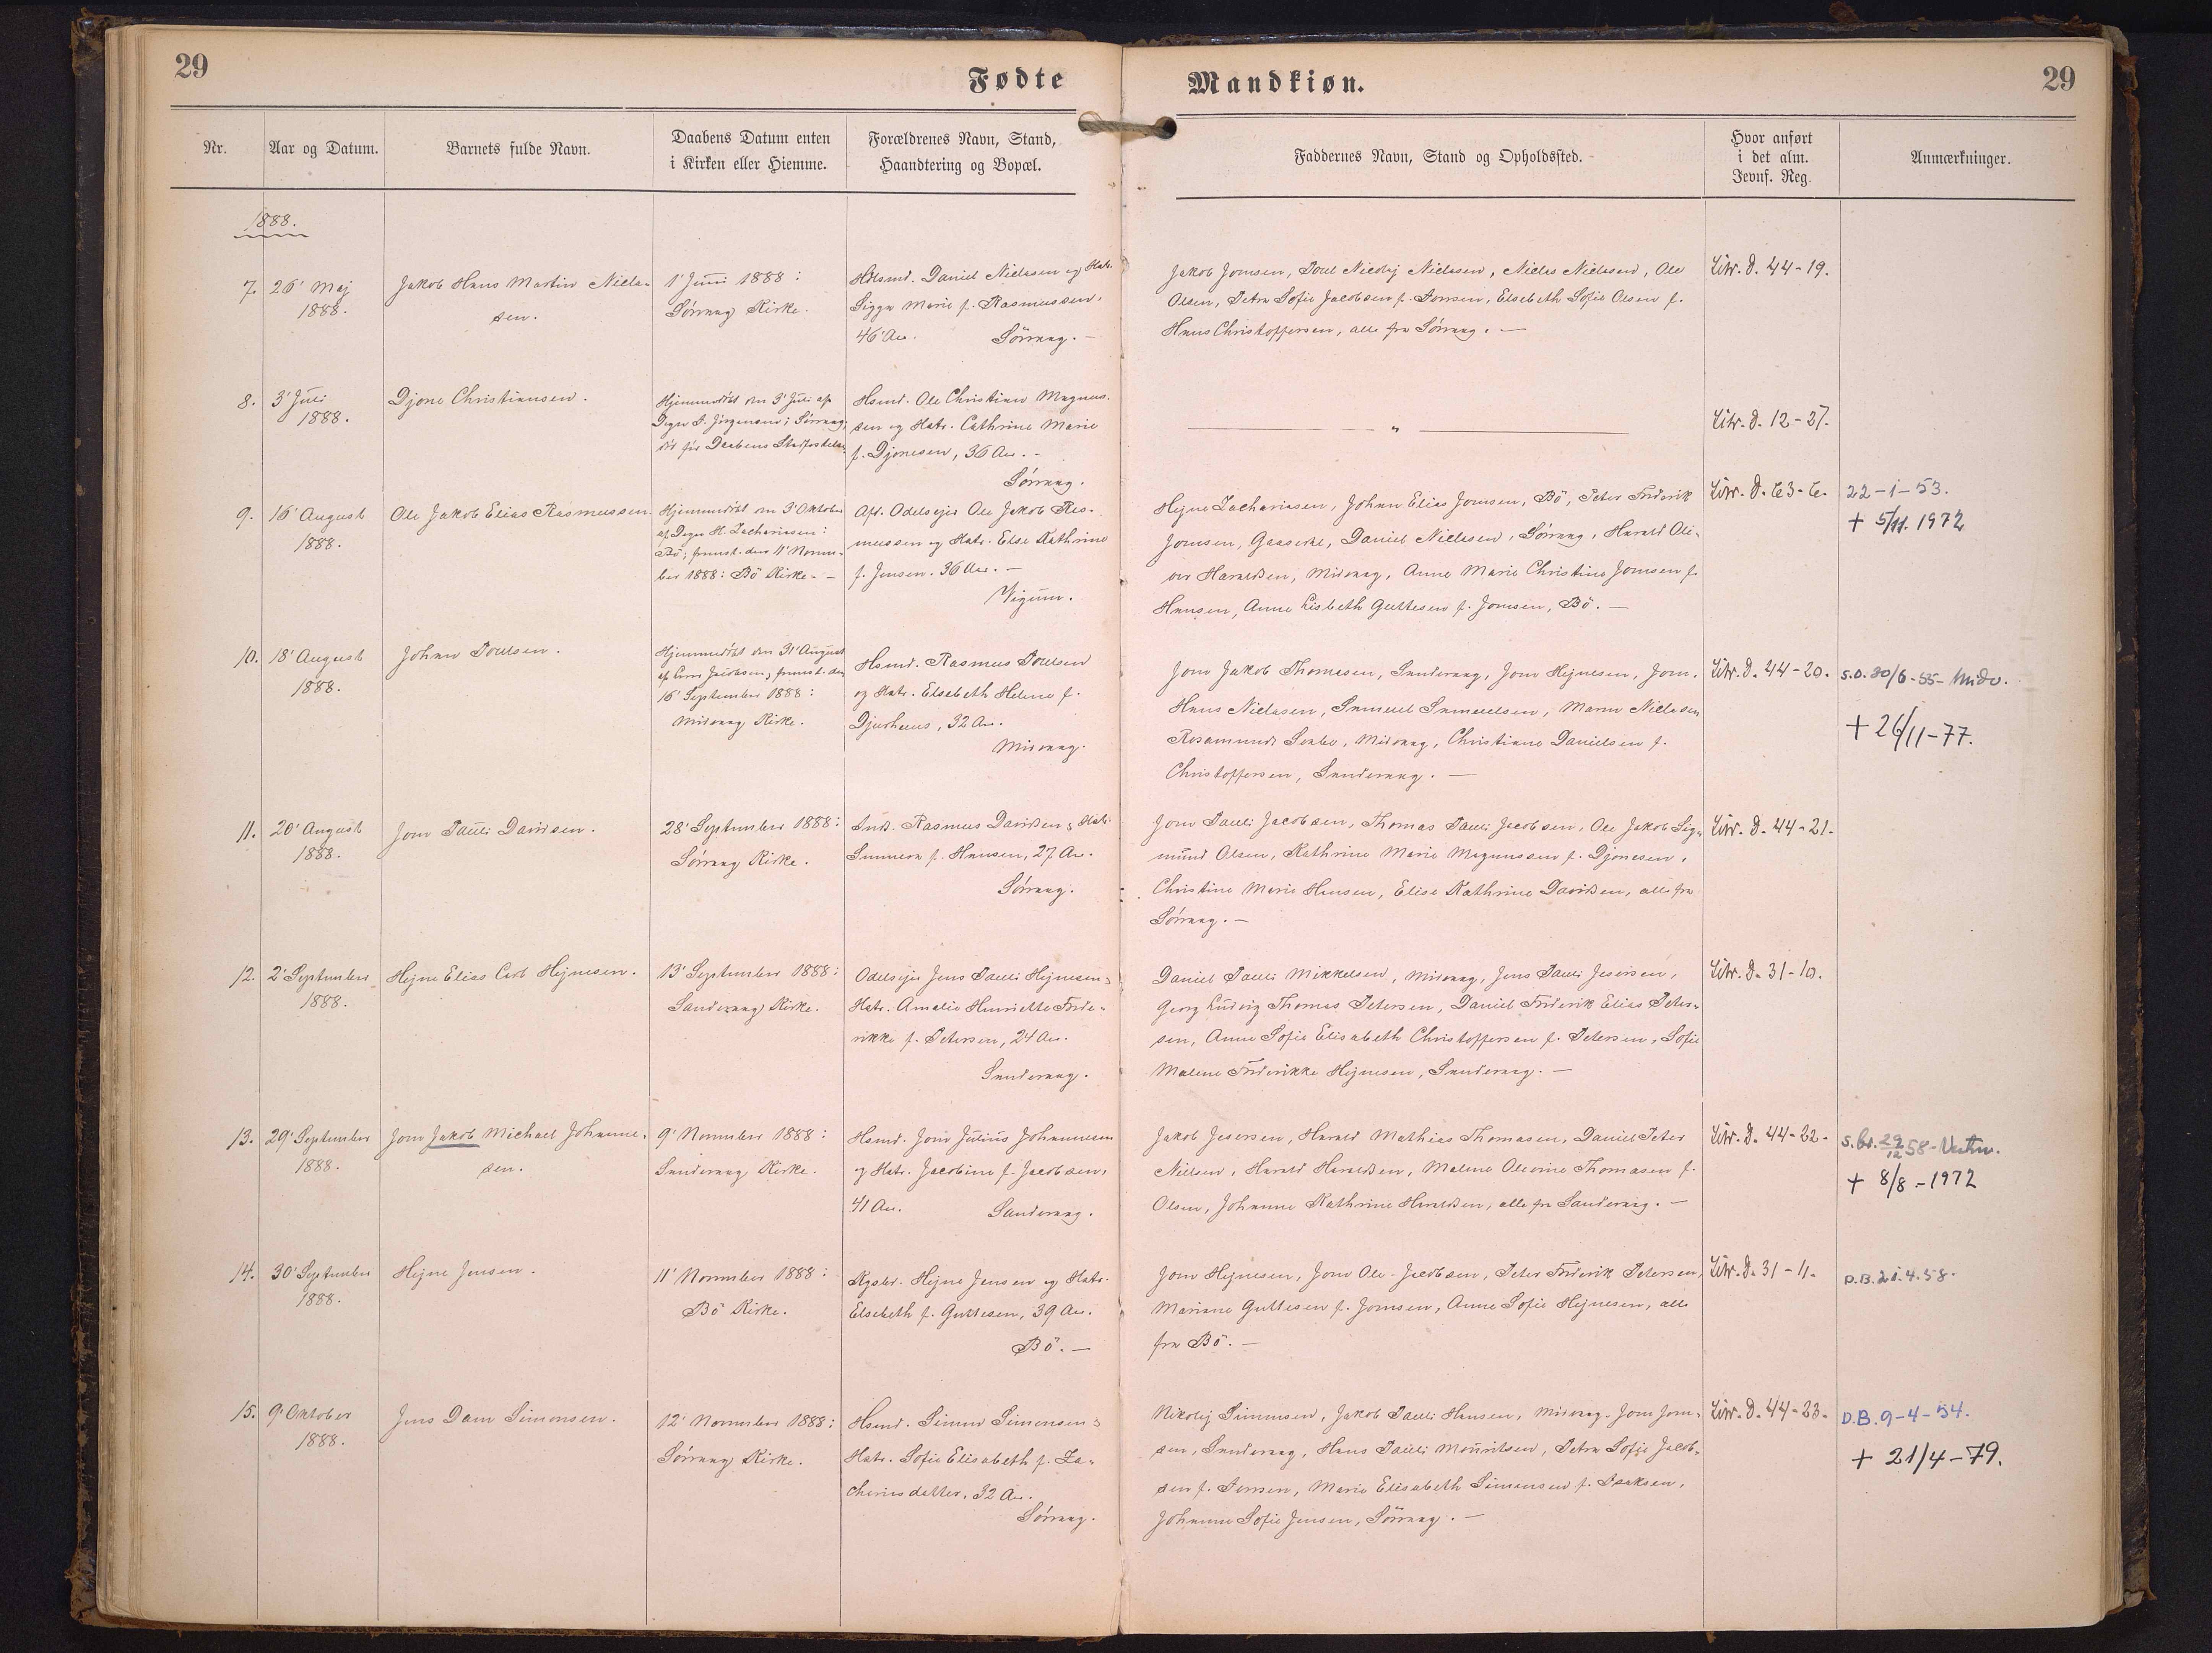 29
Fødte
Mandkiøn.
29
Nr.
Aar og Datum.
Barnets fulde Navn.
Daabens Datum enten
i Kirken eller Hiemme.
Forældrenes Navn, Stand,
Haandtering og Bopæl.
Faddernes Navn, Stand og Opholdssted.
Hvor anført
i det alm.
Jevnf. Reg.
Anmærkninger.
1888.
7.
26' Maj
1888.
Jakob Hans Martin Niela-
sen.
1' Juni 1888:
Sörvaag Kirke.
Daniel Nielasen og Hstr.
Sigga Marie f. Rasmussen,
46 Aar. Sörvaag. —
Jakob Joensen, Poul Nicolaj Nielasen, Niclas Nielasen, Ole
Olsen, Petra Sofie Jacobsen f. Joensen, Elsebeth Sofie Olsen f.
Hans Christoffersen, alle fra Sörvaag. —
Litr. D. 44-19.
8.
3' Juli
1888.
Djone Christiansen.
Hjemmedöbt den 3' Juli af
Degn P. Jörgensen i Sörvaag,
död för Daabens Stadfæstelse.
Hsmd. Ole Christian Magnus-
sen og Hstr. Cathrine Marie
f. Djonesen, 36 Aar. -
Sörvaag.
— " —
Litr. D. 12-27.
9.
16' August
1888.
Ole Jakob Elias Rasmussen.
Hjemmedöbt den 3' Oktober
af Degn H. Zachariasen i
Bö, fremst. den 11' Novem-
ber 1888: Bö Kirke. —
Afd. Odelsejer Ole Jakob Ras-
mussen og Hstr. Else Kathrine
f. Jensen. 36 Aar. —
Vigum.
Hejne Zachariasen, Johan Elias Joensen, Bö, Peter Friderik
Joensen, Gaasedal, Daniel Nielasen, Sörvaag, Harald Oli-
ver Haraldsen, Midvaag, Anne Marie Christine Joensen f.
Hansen, Anne Lisbeth Guttesen f. Joensen, Bö. —
Litr. D. 63-6.
22-1-53.
+ 5/11. 1972
10.
18' August
1888.
Johan Poulsen.
Hjemmedöbt den 31' August
af Jacobsen, fremst. den
16' September 1888:
Midvaag Kirke.
Hsmd. Rasmus Poulsen
og Hstr. Elsebeth Helene f.
Djurhuus, 32 Aar.
Midvaag.
Joen Jakob Thomasen, Sandevaag, Joen Hejnesen, Joen
Hans Nielasen, Samuel Samuelsen, Maren Nielasen
Rosamunda Lenbo, Midvaag, Christiane Danielsen f.
Christoffersen, Sandevaag. —
Litr. D. 44-20.
S.D. 30/6-55- Midv.
+ 26/11-77.
11.
20' August
1888.
Joen Pauli Davidsen.
28' September 1888:
Sörvaag Kirke.
Rasmus Davidsen & Hstr.
Sunneva f. Hansen, 27 Aar.
Sörvaag.
Joen Pauli Jacobsen, Thomas Pauli Jacobsen, Ole Jakob Sig-
mund Olsen, Kathrine Marie Magnussen f. Djonesen,
Christine Marie Hansen, Elise Kathrine Davidsen, alle fra
Sörvaag. —
Litr. D. 44-21.
12.
2' September
1888.
Hejne Elias Carl Hejnesen.
13' September 1888:
Sandevaag Kirke.
Odelsejer Jens Pauli Hejnesen &
Hstr. Amalie Henriette Fride-
rikke f. Petersen, 24 Aar.
Sandevaag.
Daniel Pauli Mikkelsen, Midvaag, Jens Pauli Jesersen,
Georg Ludvig Thomas Petersen, Daniel Friderik Elias Peter-
sen, Anne Sofie Elisabeth Christoffersen f. Petersen, Sofie
Malene Friderikke Hejnesen, Sandevaag. —
Litr. D. 31-10.
13.
29' September
1888.
Joen Jakob Michael Johanne-
sen.
9' November 1888:
Sandevaag Kirke.
Hsmd. Joen Julius Johannesen
og Hstr. Jacobine f. Jacobsen,
41 Aar. Sandevaag.
Jakob Jesersen, Harald Mathias Thomasen, Daniel Peter
Nielsen, Harald Haraldsen, Malene Olevine Thomasen f.
Olsen, Johanne Kathrine Haraldsen, alle fra Sandevaag. —
Litr. D. 44-22.
S.br. 29/12 58-
+ 8/8 -1972
14.
30' September
1888.
Hejne Jensen.
11' November 1888:
Bö Kirke.
Kgsbd. Hejne Jensen og Hstr.
Elsebeth f. Guttesen, 39 Aar.
Bö. —
Joen Hejnesen, Joen Ole Jacobsen, Peter Friderik Petersen,
Mariane Guttesen f. Joensen, Anne Sofie Hejnesen, alle
fra Bö. —
Litr. D. 31-11.
D.B. 21.4.58.
15.
9' Oktober
1888.
Jens Dam Simonsen.
12' November 1888:
Sörvaag Kirke.
Hsmd. Simun Simonsen &
Hstr. Sofie Elisabeth f. Za-
chariasdatter, 32 Aar.
Sörvaag.
Nikolaj Simonsen, Jakob Pauli Hansen, Midvaag, Joen Joen-
sen, Sandevaag, Hans Pauli Mouritsen, Petra Sofie Jacob-
sen f. Joensen, Marie Elisabeth Simonsen f. Isaksen,
Johanne Sofie Jensen, Sörvaag. —
Litr. D. 44-23.
D.B. 9-4-54.
+ 21/4-79.